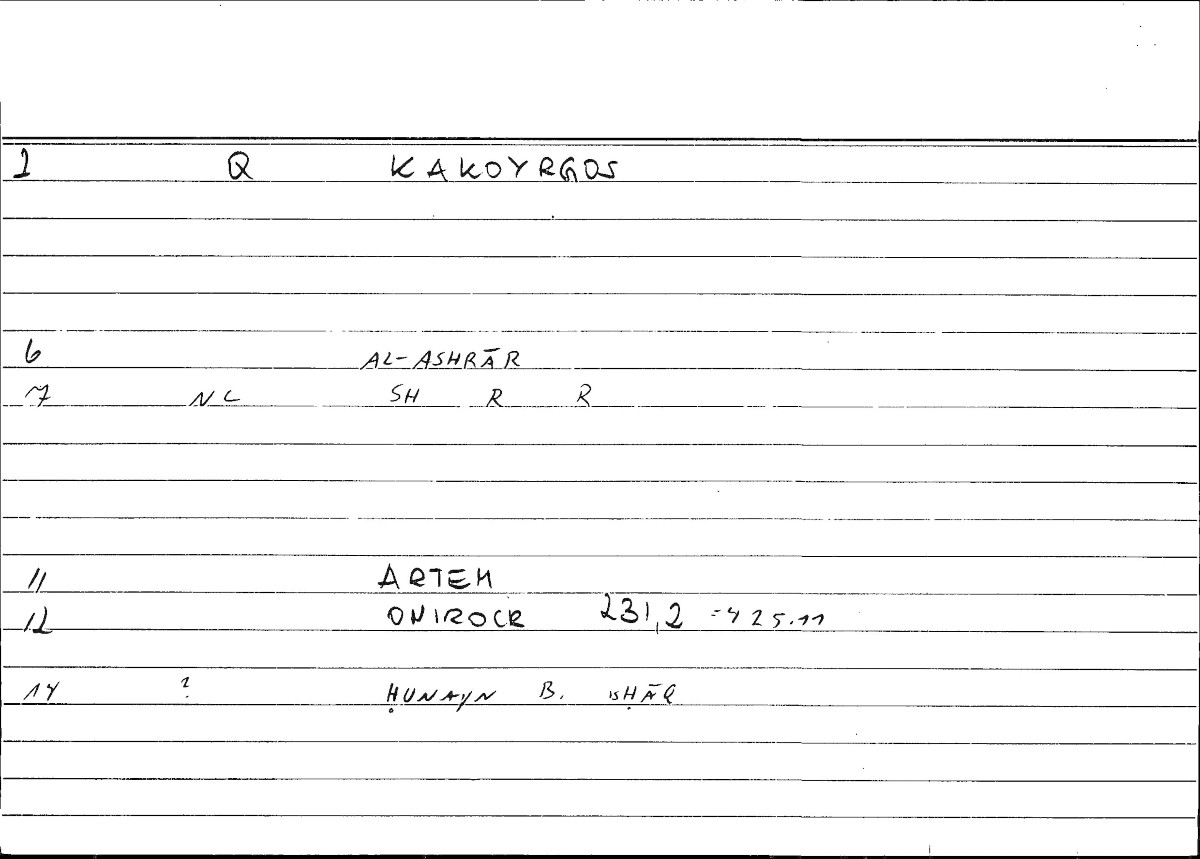 1 Q KAKOYRGOS
6 AL-ASHRĀR
7 NC SH R R
11 ARTEM
12 ONIROCR 231,2 =425.11
14 ? ḤUNAYN B. ISḤĀQ